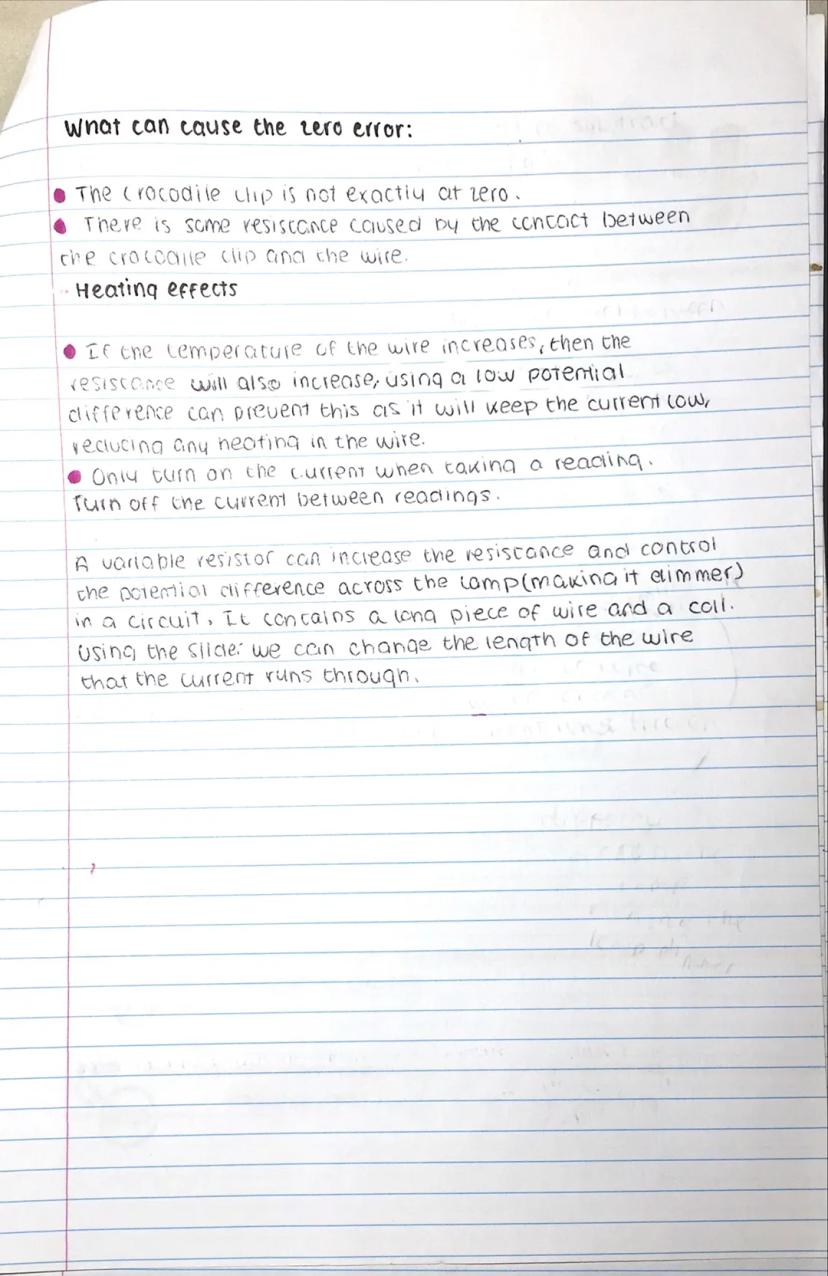 What can cause the zero error:
The crocodile clip is not exactly at zero.
There is some resistance caused by the contact between
the crocodile clip and the wire.
Heating effects
If the temperature of the wire increases, then the
resistance will also increase, using a low potential
difference can prevent this as it will keep the current low,
reducing any heating in the wire.
Only turn on the current when taking a reading.
Turn off the current between readings.
A variable resistor can increase the resistance and control
the potential difference across the lamp (making it dimmer)
in a circuit. It contains a long piece of wire and a coil.
Using the slide: we can change the length of the wire
that the current runs through.